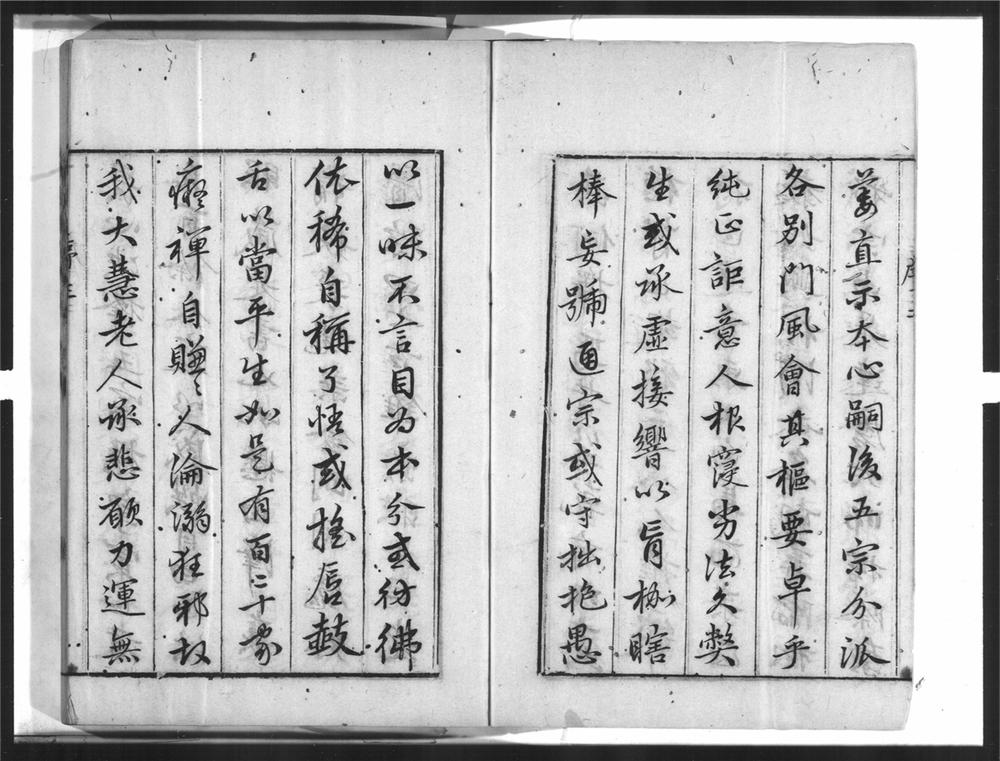 直示本心嗣後五宗分派
各別門風會其樞要卓乎
純正詎意人根寖劣法久獘
生或承虛接響以盲枷瞎
棒妄號通宗或守拙抱愚
以一味不言目为本分或彷彿
依稀自稱了悟或搖唇鼓
舌以當平生如是有百二十家
癡禪自賺〻人淪溺狂邪故
我大慧老人承悲願力運無